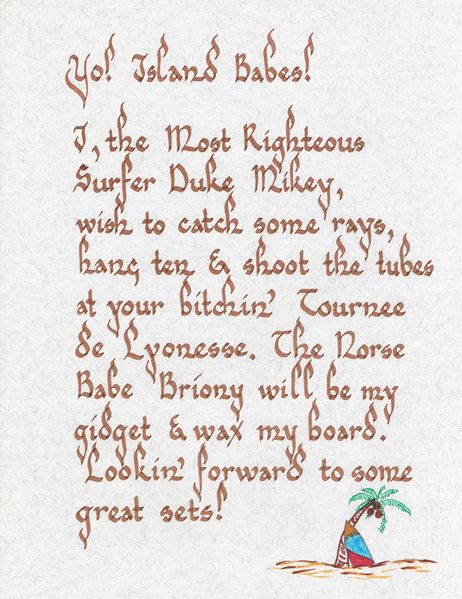 Yo! Island Babes!
I, the Most Righteous
Surfer Duke Mikey,
wish to catch some rays,
hang ten & shoot the tubes
at your bitchin' Tournee
de Lyonesse. The Norse
Babe Briony will be my
gidget & wax my board.
Lookin' forward to some
great sets!